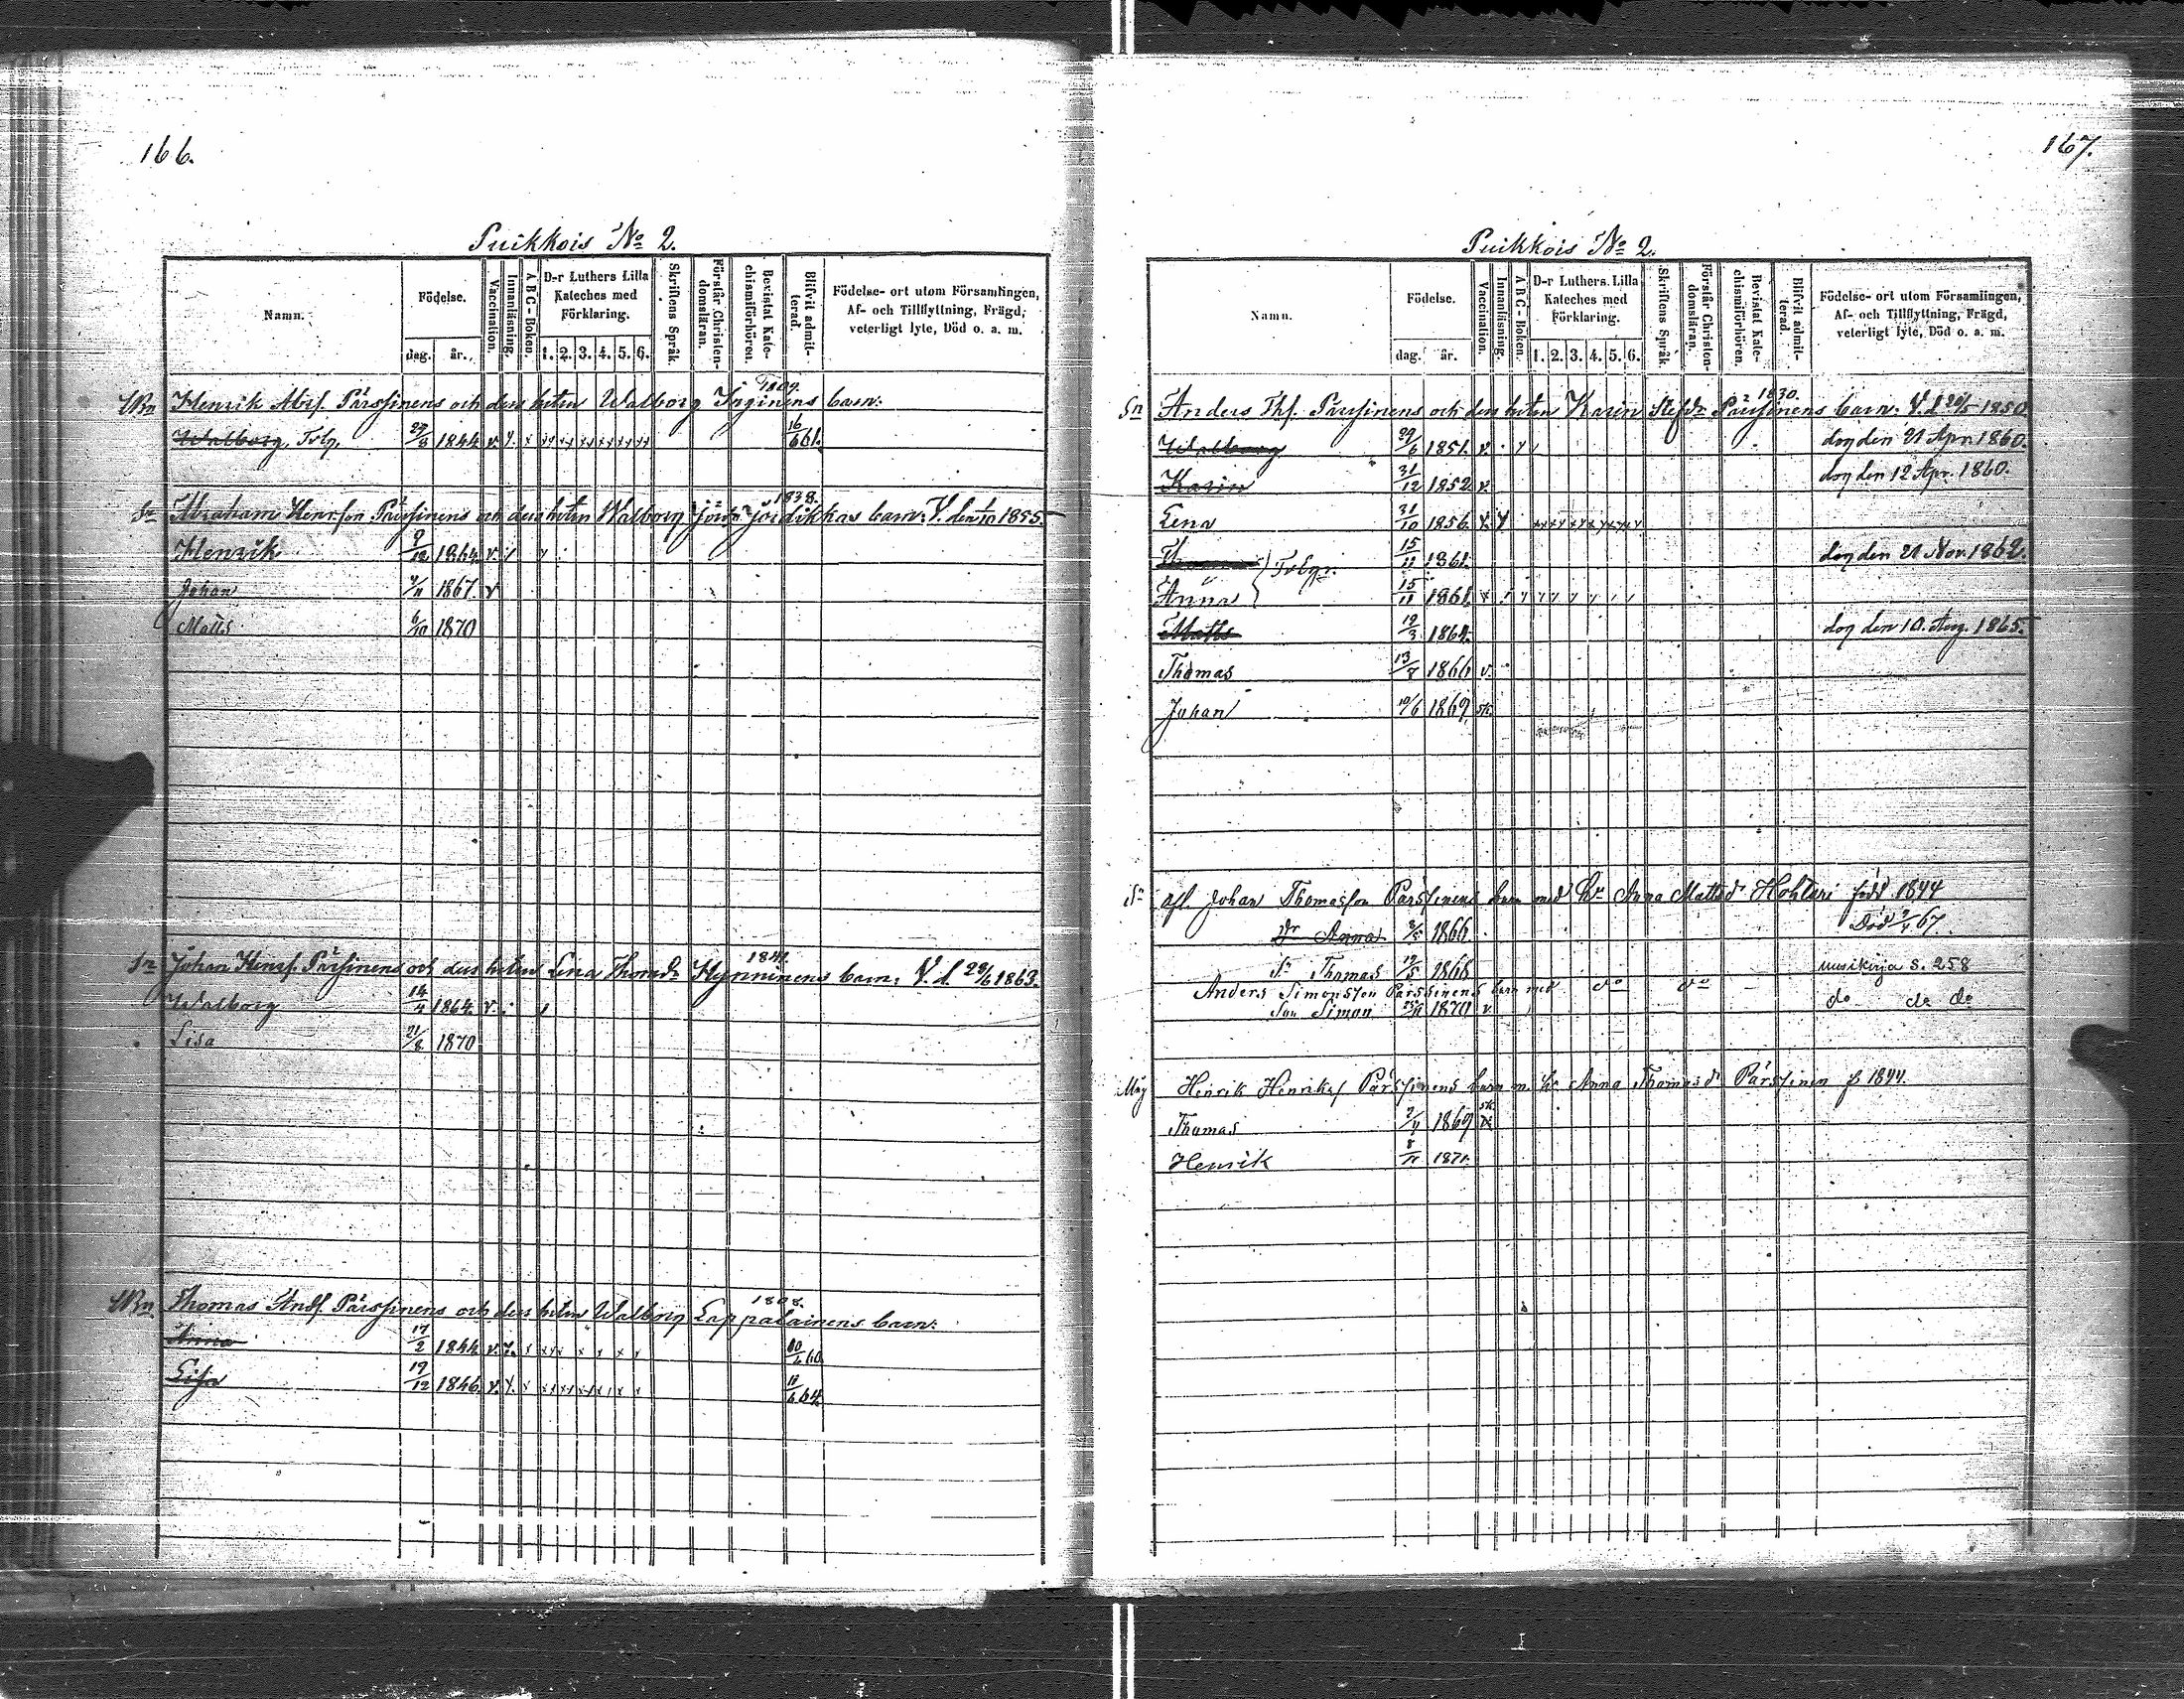 166.
Puikkois No 2.
Namn.
Födelse.
dag. år.
Vaccination.
Innanläsning.
ABC-Boken.
D-r Luthers Lilla
Kateches med
Förklaring.
1. 2. 3. 4. 5. 6.
Skriftens Språk.
Förstår Christen-
domsläran.
Bevistat Kate-
chismiförhören.
Blifvit admit-
terad.
Födelse- ort utom Församlingen,
Af- och Tillflyttning, Frägd,
veterligt lyte, Död o. a. m.
1809.
Henrik Abrs. Pärssinens och dess hstrn Walborg Inginens barn:
Walborg, Tvlg, 27/3 1844 v. 16/6 61.
1838.
Sn Abraham Henrson Pärssinens och dess hstrn Walborg Jördikkas barn: V. den 1/10 1855.
Henrik 9/12 1864. v.
Johan 4/11 1867. v
Matts 6/10 1870
1841.
Sn Johan Henrs. Pärssinens och dess hstrn Lena Thomdr Hynninens barn: V. d. 29/6 1863.
Walborg 14/4 1864. v.
Lisa 21/8 1870
1808.
Thomas Ands. Pärssinens och dess hstrn Walborg Lappalainens barn:
Anna 17/2 1844 v. 10/6 60
Lisa 19/12 1846. v. 11/6 64
167.
Puikkois No 2.
Namn.
Födelse.
dag. år.
Vaccination.
Innanläsning.
ABC-Boken.
D-r Luthers Lilla
Kateches med
Förklaring.
1. 2. 3. 4. 5. 6.
Skriftens Språk.
Förstår Christen-
domsläran.
Bevistat Kate-
chismiförhören.
Blifvit admit-
terad.
Födelse- ort utom Församlingen,
Af- och Tillflyttning, Frägd,
veterligt lyte, Död o. a. m.
1830.
Sn Anders Ths. Pärssinens och dess hstrn Karin Stefdr Pärssinens barn: V. d 20/5 1850
Walborg 29/6 1851. v. dog den 21 Apr. 1860.
Karin 31/12 1852 v. dog den 12 Apr. 1860.
Lena 31/10 1856.
Thomas 15/11 1861. dog den 21 Nov. 1862.
Tvlgr.
Anna 15/11 1861.
Matts 19/3 1864. dog den 10. Aug. 1865.
Thomas 13/8 1866 v.
Johan 10/6 1869. sk.
Sn afl. Johan Thomasson Pärssinens barn med hr Anna Mattsdr Hohteri född 1844
Dr Anna 3/5 1866 Död 67.
Sn Thomas 19/5 1868 uusikirja s. 258
Anders Simonsson Pärssinens barn med do do
Son Simon 25/11 1870 v do do do
Måg Henrik Henriks Pärssinens barn m. hr Anna Thomasd Pärssinen f. 1844.
Thomas 2/4 1869 sk.
Henrik 8/11 1871.